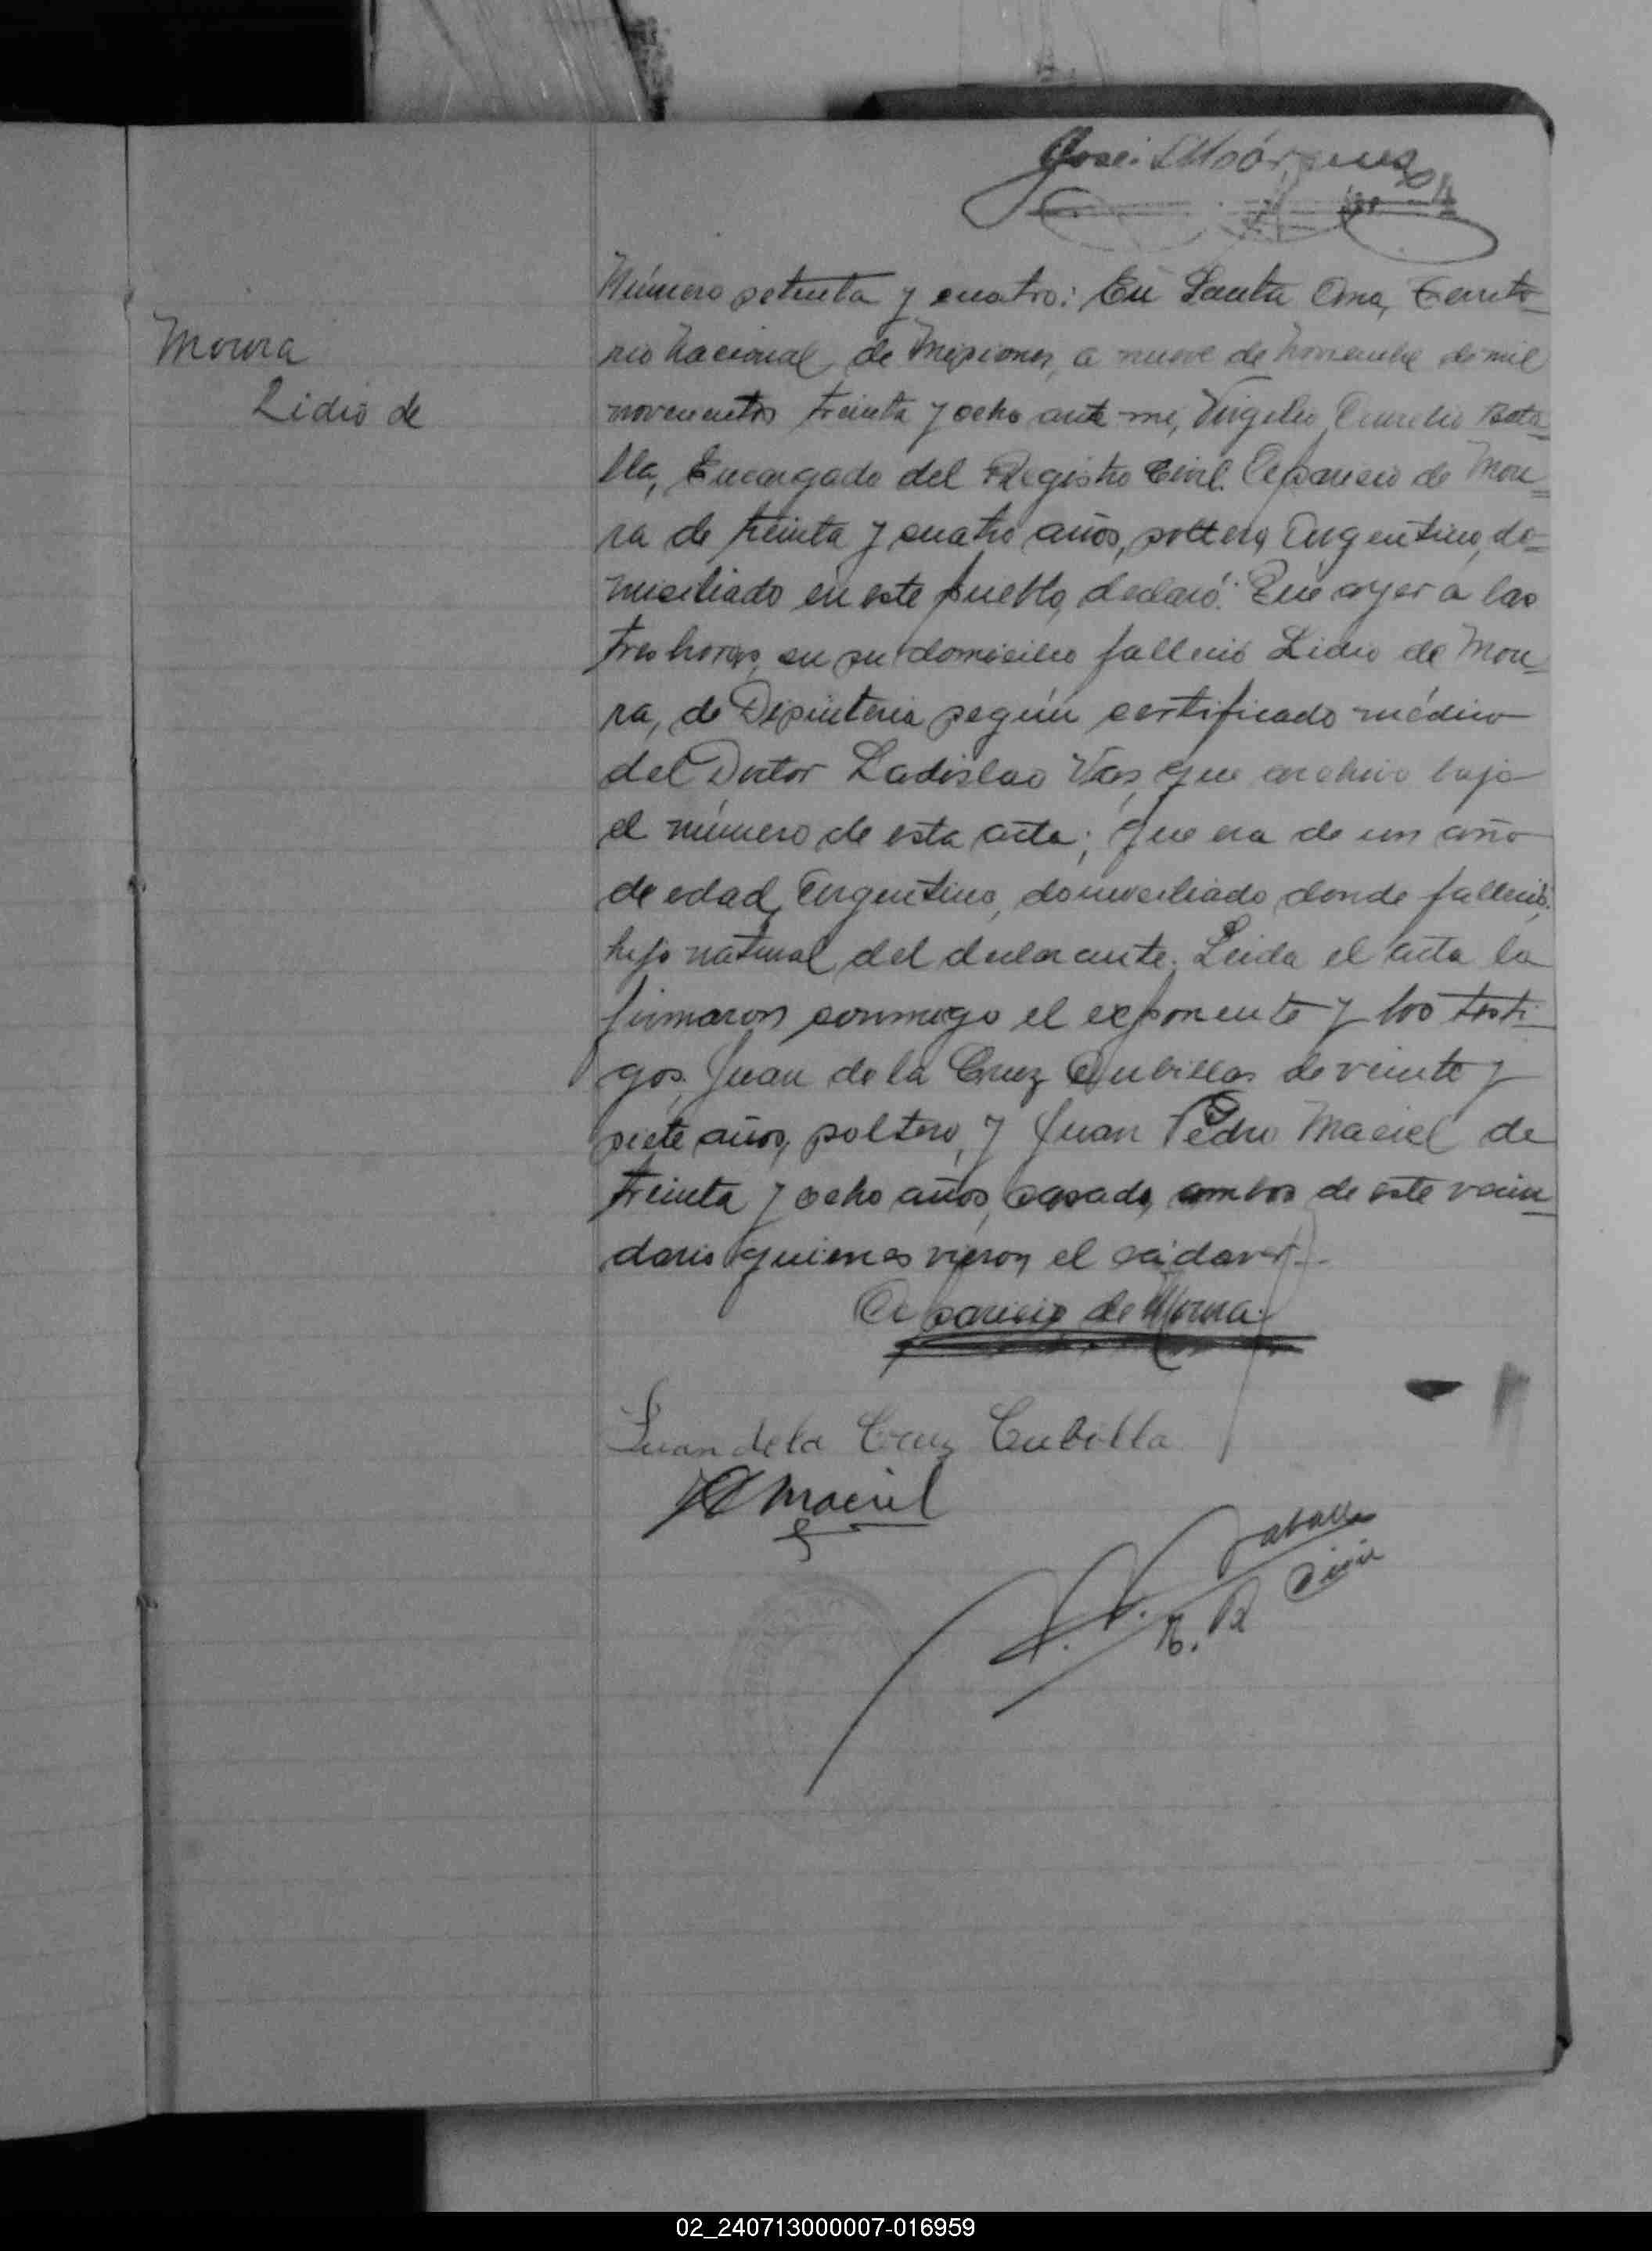 José Márquez
Moura
Lidio de
Número setenta y cuatro: En Santa Ana, Territo-
rio Nacional de Misiones, a nueve de Noviembre de mil
novecientos treinta y ocho ante mi, Virgilio Aurelio
lla, Encargado del Registro Civil. Aparicio de Mou-
ra de treinta y cuatro años, soltero, Argentino, do-
miciliado en este pueblo, declaró: Que ayer a las
tres horas, en su domicilio falleció Lidio de Mou-
ra, de Disinteria según certificado médico
del Doctor Ladislao que archivo bajo
el número de esta acta; que era de un año
de edad, Argentino, domiciliado donde falleció;
hijo natural del declarante. Leida el acta la
firmaron conmigo el exponente y los testi-
gos, Juan de la Cruz Cubillas de veinte y
siete años, soltero, y Juan Pedro Maciel de
treinta y ocho años, casado, ambos de este vecin-
dario quienes vieron el cadaver.-
Aparicio de Moura
Juan de la Cruz Cubilla
Maciel
E. R Civil
02_240713000007-016959